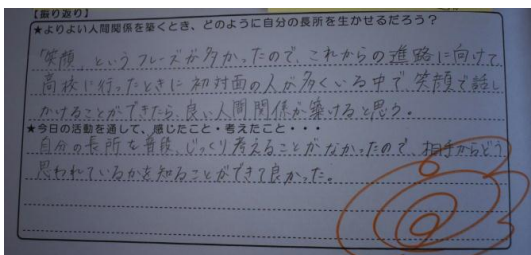 【振り返り】
★よりよい人間関係を築くとき、どのように自分の長所を生かせるだろう？
「笑顔」というフレーズが多かったので、これからの進路に向けて
高校に行ったときに初対面の人が多くいる中で笑顔で話し
かけることができたら、良い人間関係が築けると思う。
★今日の活動を通して、感じたこと・考えたこと・・・
自分の長所を普段、じっくり考えることがなかったので、相手からどう
思われているかを知ることができて良かった。